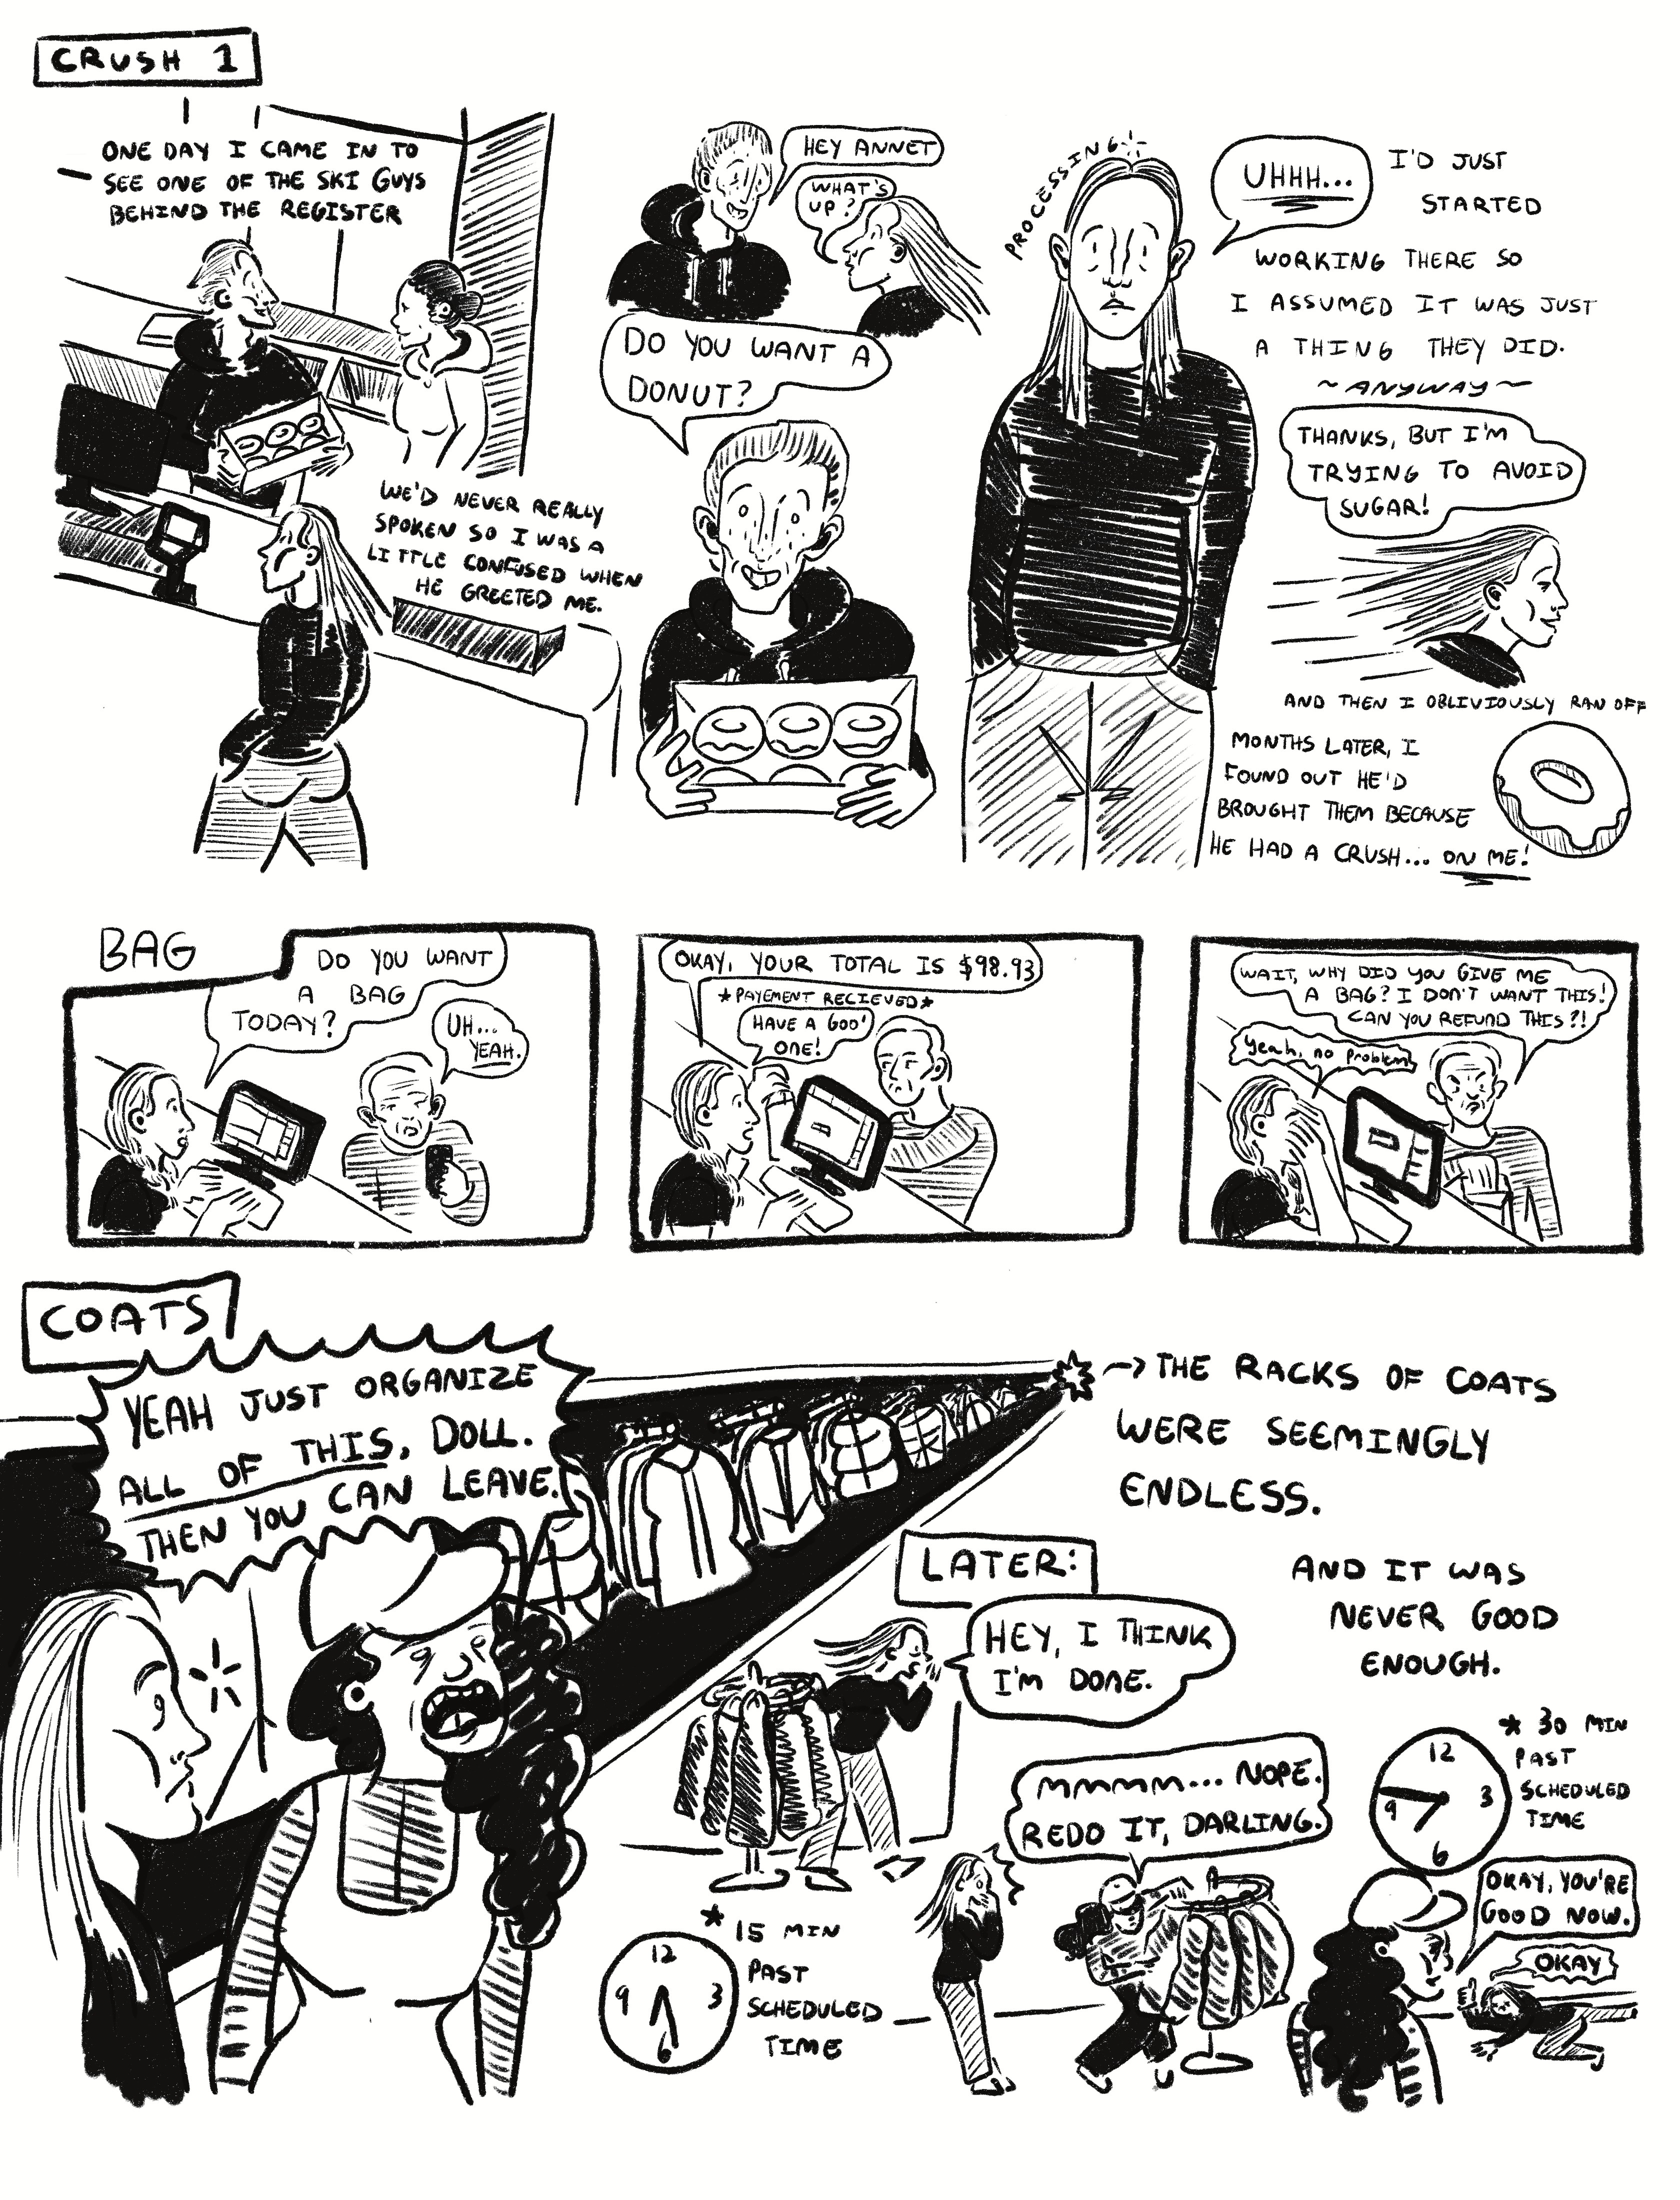 CRUSH 1
ONE DAY I CAME IN TO
SEE ONE OF THE SKI GUYS
BEHIND THE REGISTER
WE'D NEVER REALLY
SPOKEN SO I WAS A
LITTLE CONFUSED WHEN
HE GREETED ME.
HEY ANNET
WHAT'S
UP?
DO YOU WANT A
DONUT?
PROCESSING
UHHH...
I'D JUST
STARTED
WORKING THERE SO
I ASSUMED IT WAS JUST
A THING THEY DID.
~ANYWAY~
THANKS, BUT I'M
TRYING TO AVOID
SUGAR!
AND THEN I OBLIVIOUSLY RAN OFF
MONTHS LATER, I
FOUND OUT HE'D
BROUGHT THEM BECAUSE
HE HAD A CRUSH... ON ME!
BAG
DO YOU WANT
A BAG
TODAY?
UH...
YEAH.
OKAY, YOUR TOTAL IS $98.93
*PAYEMENT RECIEVED*
HAVE A GOO'
ONE!
WAIT, WHY DID YOU GIVE ME
A BAG? I DON'T WANT THIS!
CAN YOU REFUND THIS?!
Yeah, no problem
COATS
YEAH JUST ORGANIZE
ALL OF THIS, DOLL.
THEN YOU CAN LEAVE.
-> THE RACKS OF COATS
WERE SEEMINGLY
ENDLESS.
LATER:
HEY, I THINK
I'M DONE.
AND IT WAS
NEVER GOOD
ENOUGH.
12
3
6
9
* 15 MIN
PAST
SCHEDULED
TIME
MMMM... NOPE.
REDO IT, DARLING.
12
3
6
9
* 30 MIN
PAST
SCHEDULED
TIME
OKAY, YOU'RE
GOOD NOW.
OKAY